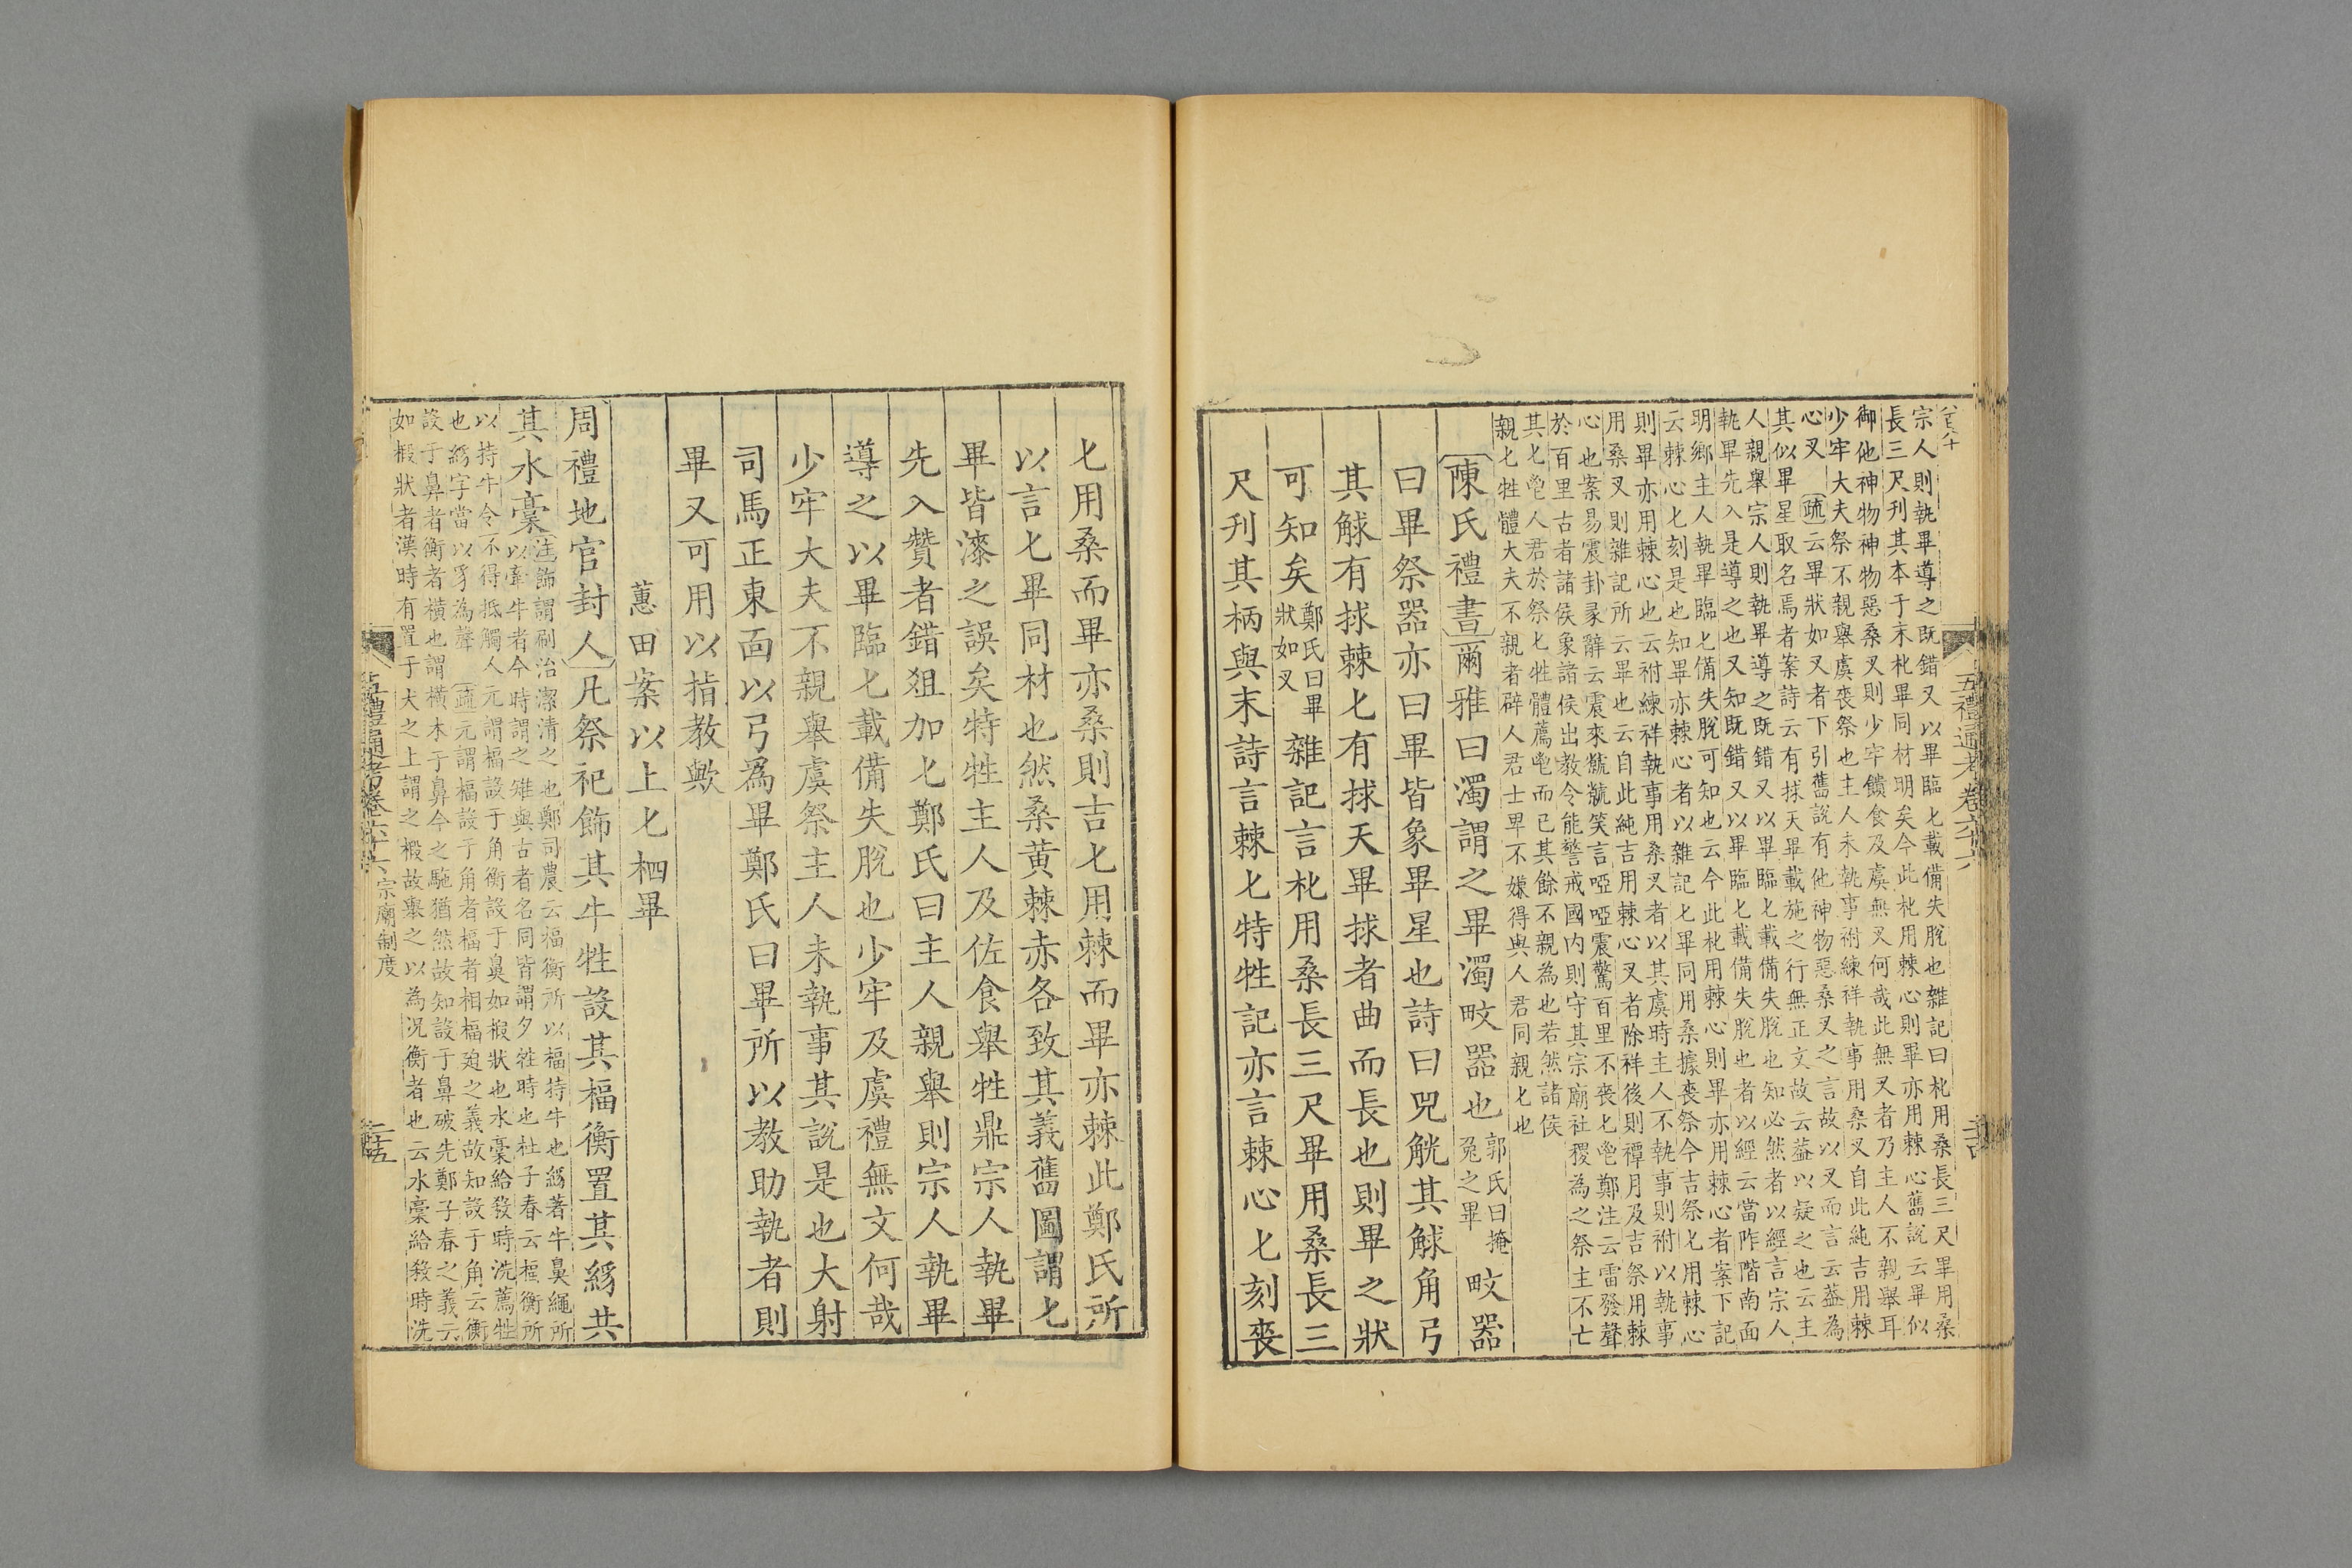 宗人則執畢導之既錯又以畢臨匕載備失脫也雜記曰朼用桑長三尺畢用桑
長三尺刋其本于末朼畢同材明矣今此朼用棘心則畢亦用棘心舊說云畢似
御他神物神物惡桑叉則少牢饋食及虞無叉何哉此無叉者乃主人不親舉耳
少牢大夫祭不親舉虞喪祭也主人未執事祔練祥執事用桑叉自此純吉用棘
心叉疏云畢狀如叉者下引舊說有他神物惡桑叉之言故以叉而言云葢為
其似畢星取名焉者案詩云有捄天畢載施之行無正文故云葢以疑之也云主
人親舉宗人則執畢導之既錯又以畢臨匕載備失脫也知必然者以經言宗人
執畢先入是導之也又知既錯又以畢臨匕載備失脫也者以經云當阼階南面
明鄉主人執畢臨匕備失脫可知也云今此朼用棘心則畢亦用棘心者案下記
云棘心匕刻是也知畢亦棘心者以雜記匕畢同用桑據喪祭今吉祭匕用棘心
則畢亦用棘心也云祔練祥執事用桑叉者以其虞時主人不執事則祔以執事
用桑叉則雜記所云畢也云自此純吉用棘心叉者除祥後則禫月及吉祭用棘
心也案易震卦彖辭云震來虩虩笑言啞啞震驚百里不喪匕鬯鄭注云雷發聲
於百里古者諸侯象諸侯出教令能警戒國內則守其宗廟社稷為之祭主不亡
其匕鬯人君於祭匕牲體薦鬯而已其餘不親為也若然諸侯
親匕牲體大夫不親者辟人君士卑不嫌得與人君同親匕也
陳氏禮書爾雅曰濁謂之畢濁畋器也郭氏曰掩兔之畢畋器
曰畢祭器亦曰畢皆象畢星也詩曰兕觥其觩角弓
其觩有捄棘匕有捄天畢捄者曲而長也則畢之狀
可知矣鄭氏曰畢狀如叉雜記言朼用桑長三尺畢用桑長三
尺刋其柄與末詩言棘匕特牲記亦言棘心匕刻喪
五禮通考卷六十六
匕用桑而畢亦桑則吉匕用棘而畢亦棘此鄭氏所
以言匕畢同材也然桑黄棘赤各致其義舊圖謂匕
畢皆漆之誤矣特牲主人及佐食舉牲鼎宗人執畢
先入贊者錯俎加匕鄭氏曰主人親舉則宗人執畢
導之以畢臨匕載備失脫也少牢及虞禮無文何哉
少牢大夫不親舉虞祭主人未執事其說是也大射
司馬正東面以弓爲畢鄭氏曰畢所以教助執者則
畢又可用以指教歟
蕙田案以上匕柶畢
周禮地官封人凡祭祀飾其牛牲設其楅衡置其絼共
其水槀注飾謂刷治潔清之也鄭司農云楅衡所以楅持牛也絼著牛鼻繩所
以牽牛者今時謂之雉與古者名同皆謂夕牲時也杜子春云楅衡所
以持牛令不得抵觸人元謂楅設于角衡設于鼻如椵狀也水槀給殺時洗薦牲
也絼字當以豸為聲疏元謂楅設于角者楅者相楅廹之義故知設于角云衡
設于鼻者衡者横也謂横木于鼻今之駞猶然故知設于鼻破先鄭子春之義云
如椵狀者漢時有置于犬之上謂之椵故舉之以為況衡者也云水槀給殺時洗
宗廟制度